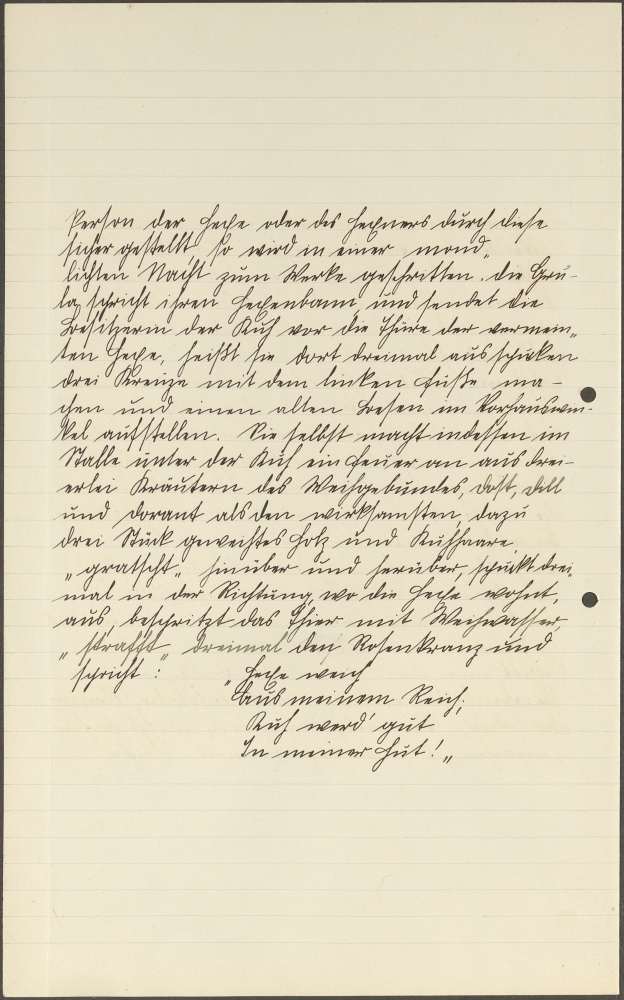 Person der Hexe oder des Hexners durch diese
sicher gestellt, so wird in einer mond„
lichten Nacht zum Werke geschritten. Die Gru-
la, spricht ihren Hexenbann und sendet die
Besitzerin der Kuh vor die Thüre der vermein„
ten Hexe, heißt sie dort dreimal ausspucken
drei Kreuze mit dem linken Fuße ma-
chen und einen alten Besen im Vorhauswin-
kel aufstellen. Sie selbst macht indessen im
Stalle unter der Kuh ein Feuer an aus drei-
erlei Kräutern des Weihgebundes, Dost, Dill
und Dorant als den wirksamsten, dazu
drei Stück geweichtes Holz und Kuhhaare,
„gratscht„ hinüber und herüber, spuckt drei„
mal in der Richtung, wo die Hexe wohnt,
aus, bespritzt das Thier mit Weihwasser,
„strafft„ dreimal den Rosenkranz und
spricht: „Hexe weich
Aus meinem Reich;
Kuh werd' gut
In meiner Hut!„